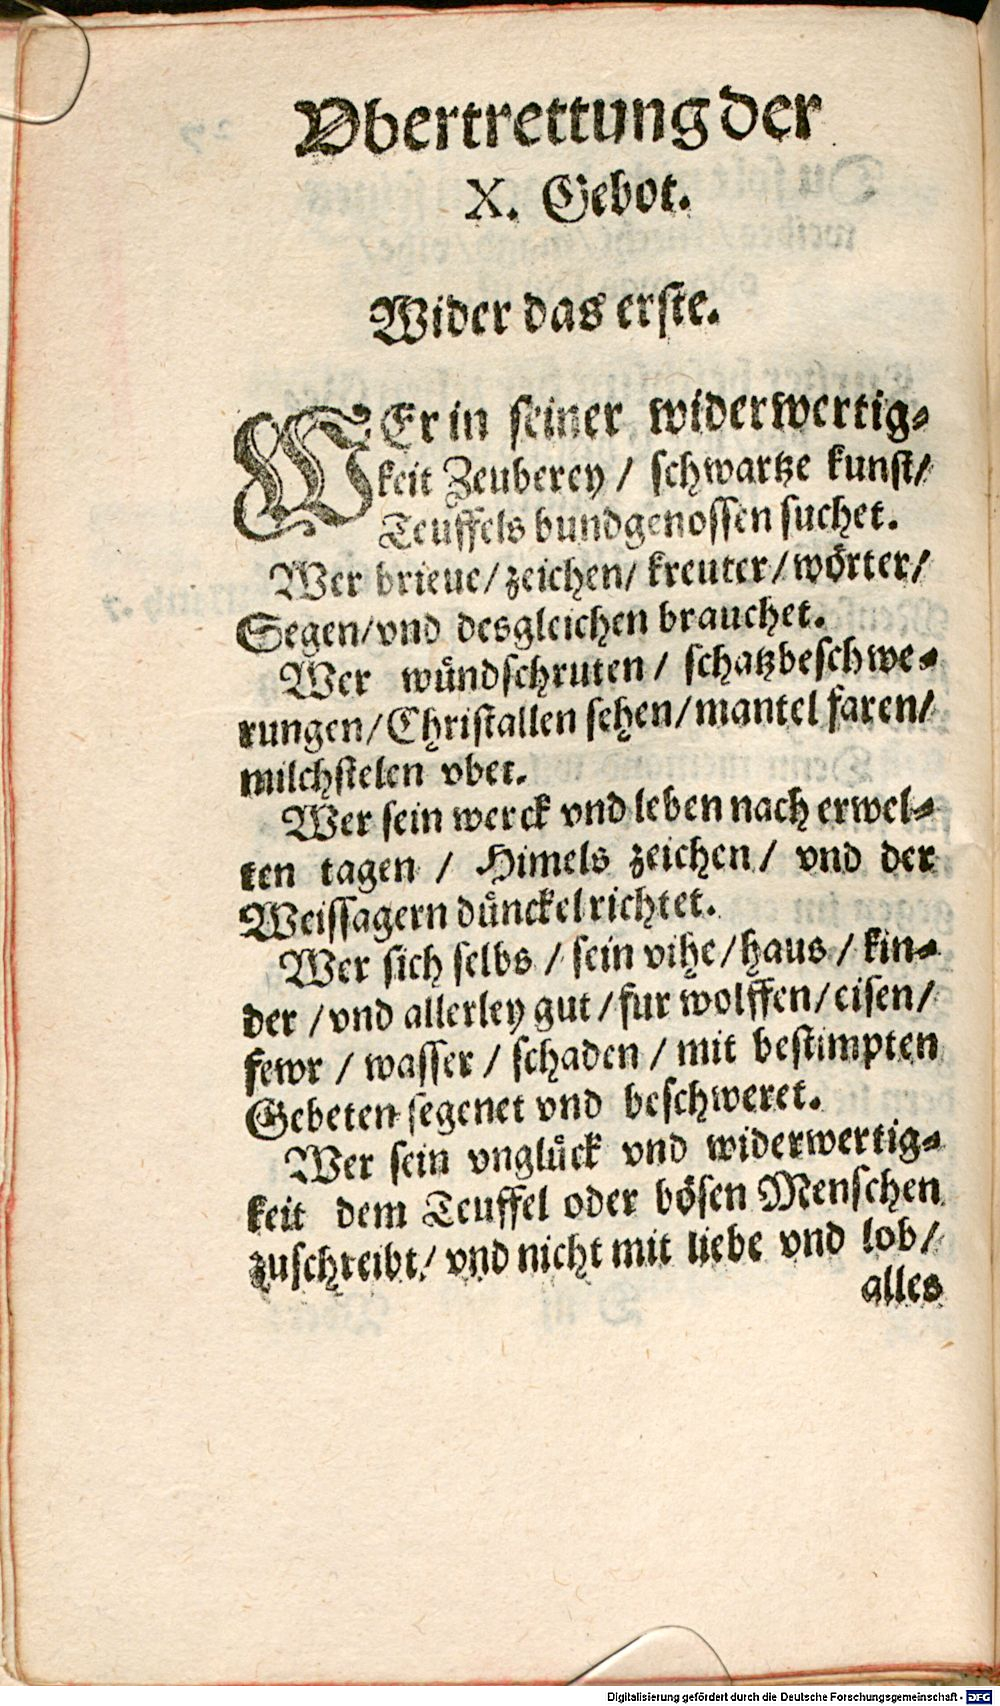 Vbertrettung der
X. Gebot.
Wider das erste.
WEr in seiner widerwertig-
keit Zeuberey / schwartze kunst /
Teuffels bundgenossen suchet.
Wer brieue / zeichen / kreuter / wörter /
Segen / vnd desgleichen brauchet.
Wer wůndschruten / schatzbeschwe-
rungen / Christallen sehen / mantel faren /
milchstelen vbet.
Wer sein werck vnd leben nach erwel-
ten tagen / Himels zeichen / vnd der
Weissagern důnckel richtet.
Wer sich selbs / sein vihe / haus / kin-
der / vnd allerley gut / fur wolffen / eisen /
fewr / wasser / schaden / mit bestimpten
Gebeten segenet vnd beschweret.
Wer sein vnglůck vnd widerwertig-
keit dem Teuffel oder bösen Menschen
zuschreibt / vnd nicht mit liebe vnd lob /
alles
Digitalisierung gefördert durch die Deutsche Forschungsgemeinschaft - DFG